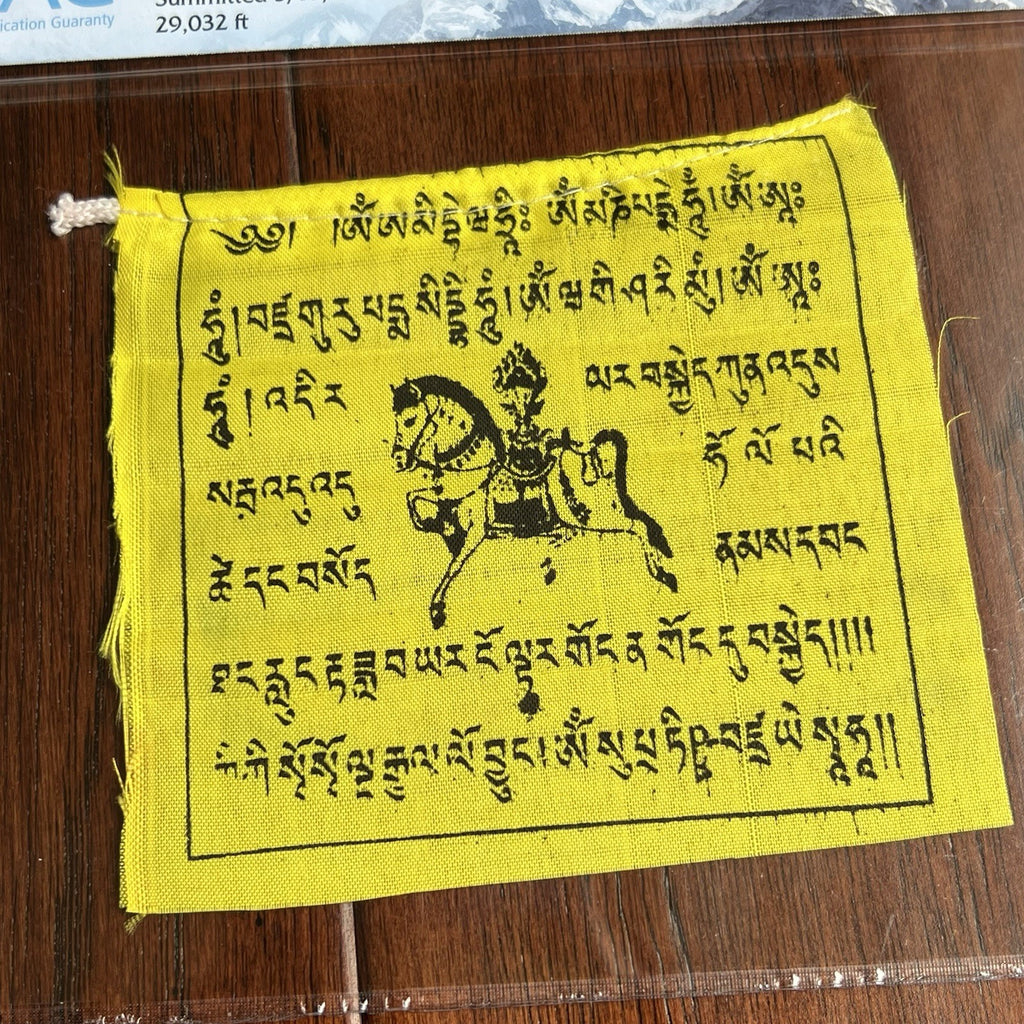 ication Guaranty
29,032 ft
༄༅། །ཨོཾ་ཨ་མི་དྷེ་ཝ་ཧྲཱིཿ ཨོཾ་མ་ཎི་པདྨེ་ཧཱུྃ།ཨོཾ་ཨཱཿ
ཧཱུྃ།བཛྲ་གུ་རུ་པདྨ་སིདྡྷི་ཧཱུྃ།ཨོཾ་ཝ་གི་ཤ་རི་མུཾ།ཨོཾ་ཨཱཿ
ཧཱུྃ། འདིར ཡར་བསྐྱེད་ཀུན་འདུས
ཧོ་ལོ་པའི
ཚེ་དང་བསོད ནམས་དབང
ཐང་རླུང་རྟ་ཟླ་བ་ཡར་ངོ་ལྟར་གོང་ན་གོང་དུ་བསྐྱེད།།།།
ཀི་ཀི་སྭོ་སྭོ་ལྷ་རྒྱལ་ལོ་བྱུང།ཨོཾ་སུ་པྲ་ཏིཥྛ་བཛྲ་ཡེ་སྭཱཧཱ།།